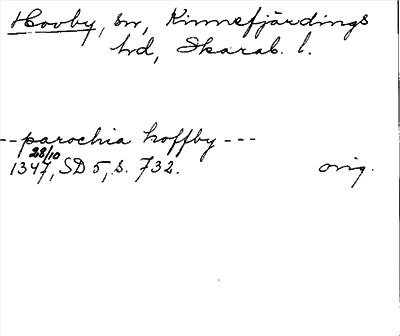 Hovby, sn, Kinnefjärdings
hd, Skarab. l.
--parochia hoffby ---
28/10
1347, SD 5, s. 732. orig.